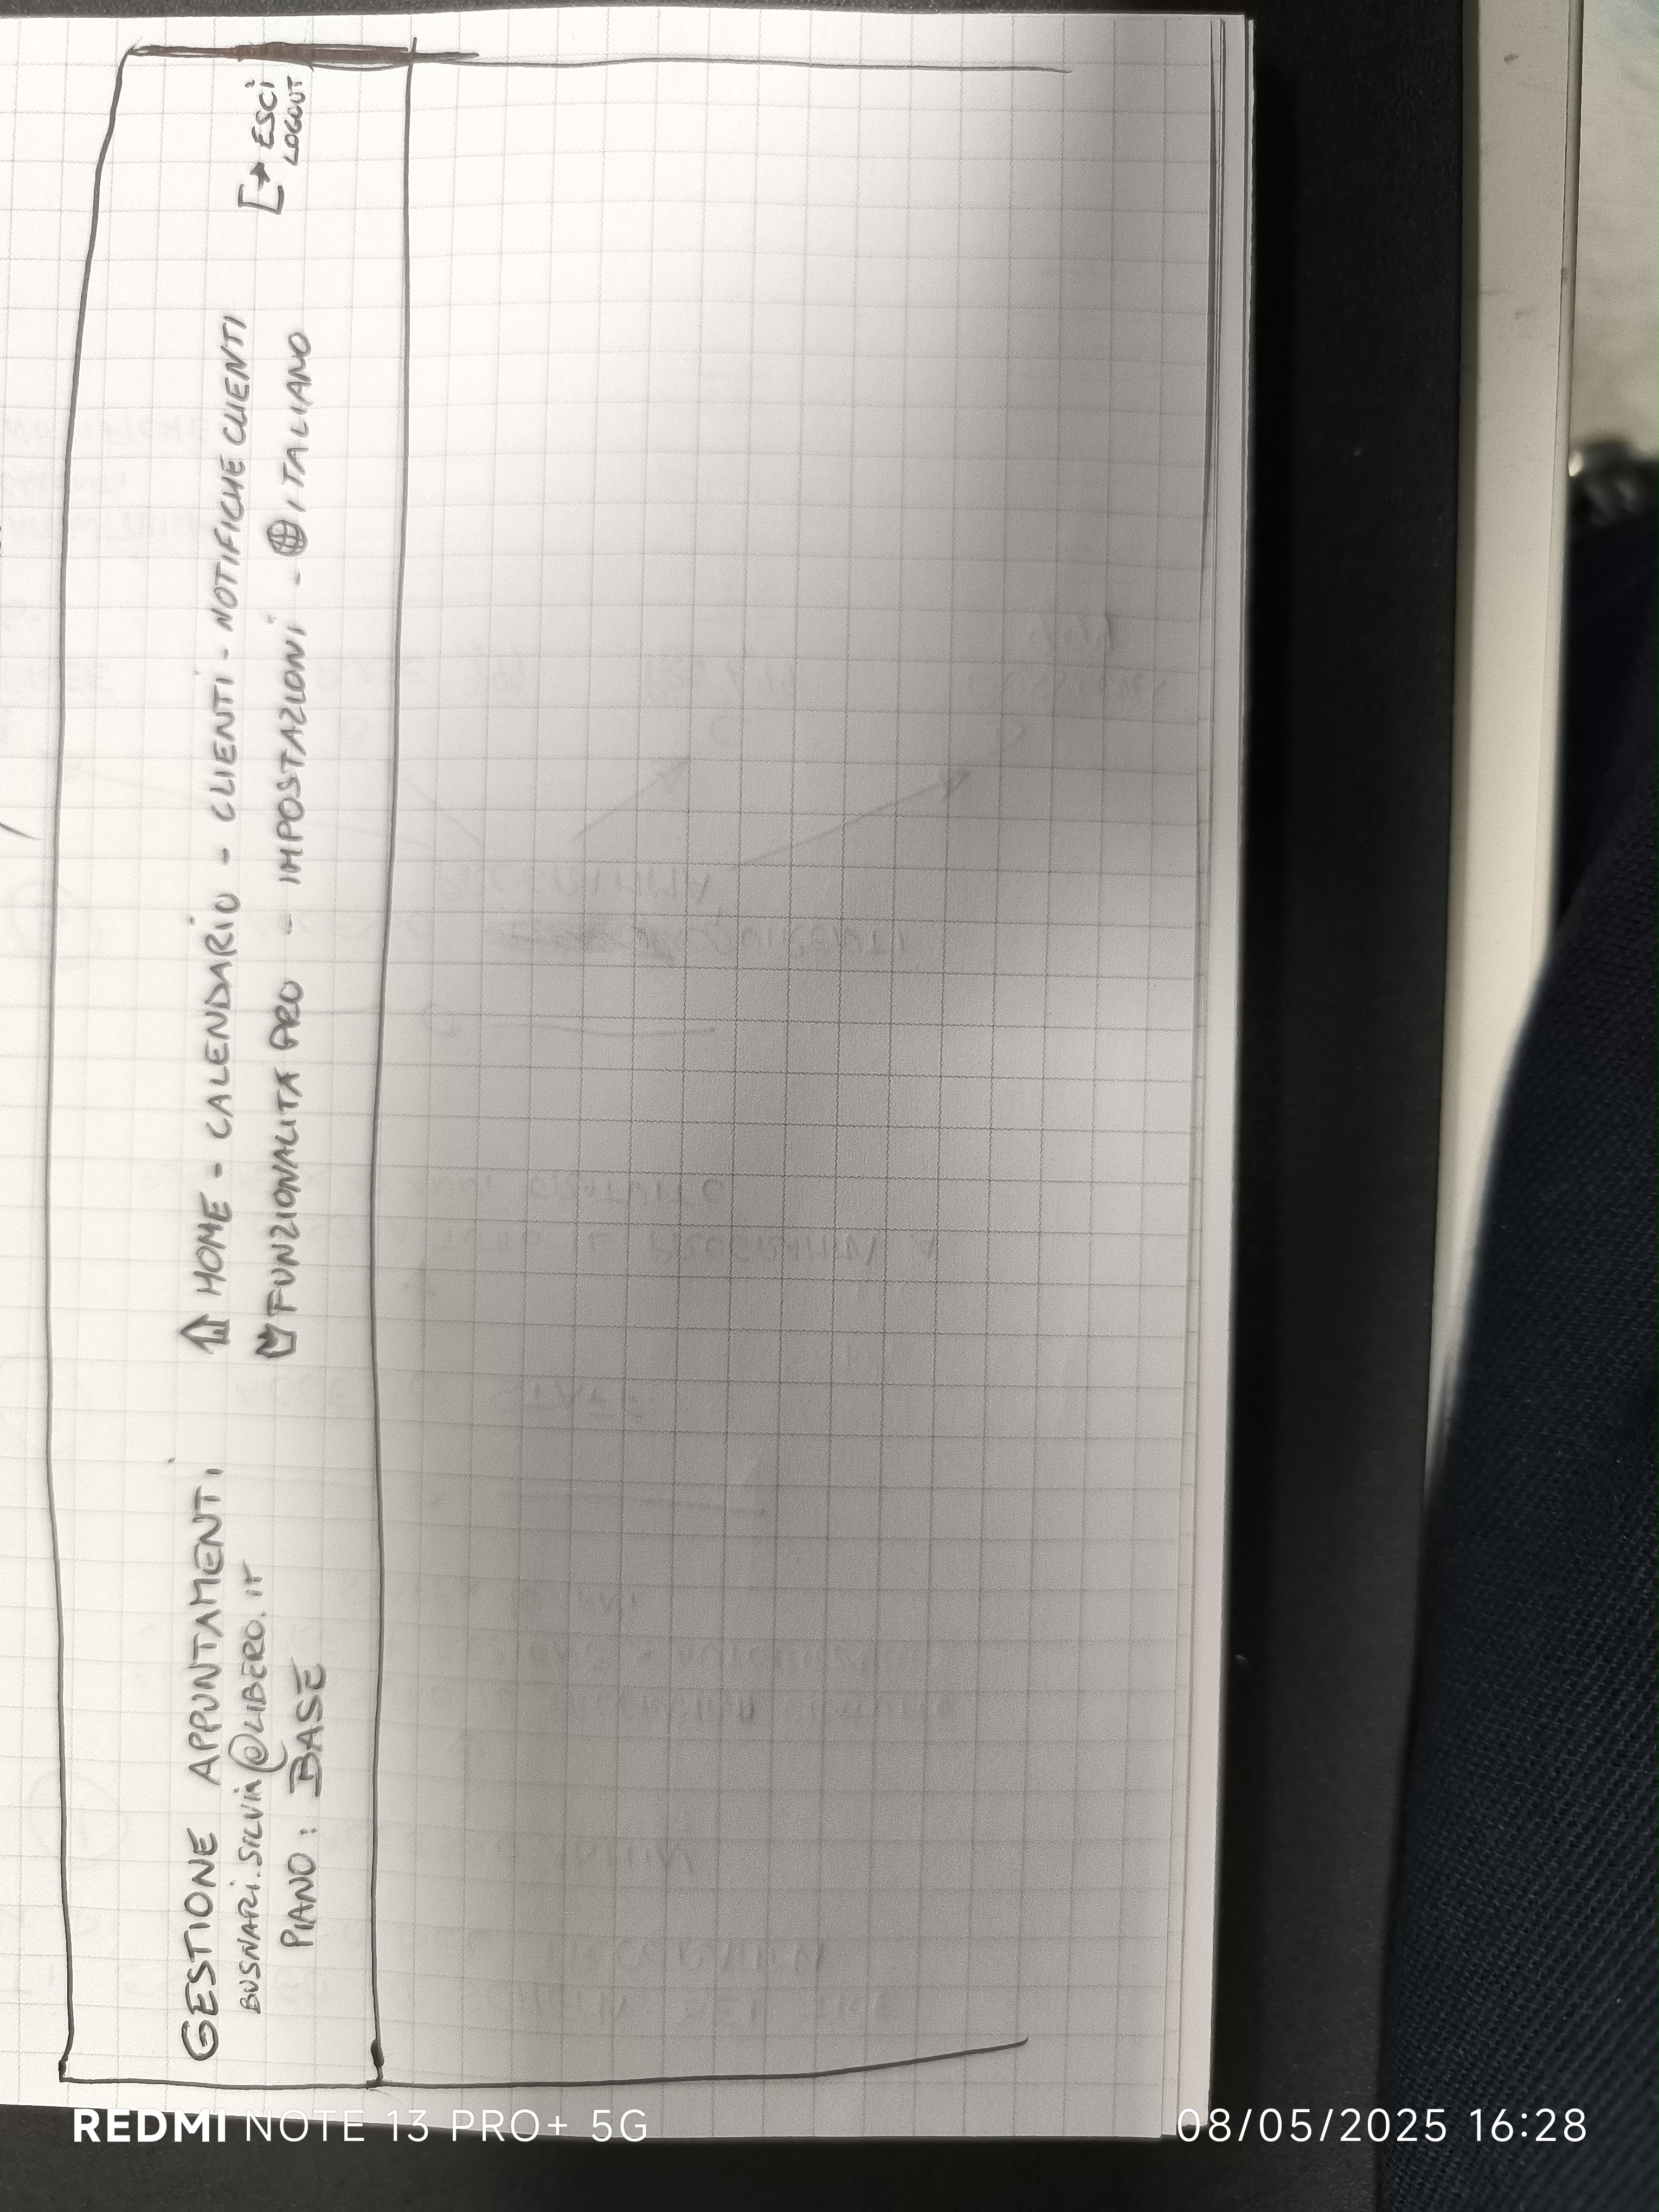 GESTIONE APPUNTAMENTI
BUSNARI.SILVIA@LIBERO.IT
PIANO: BASE
HOME - CALENDARIO - CLIENTI - NOTIFICHE CLIENTI
FUNZIONALITÀ PRO - IMPOSTAZIONI - ITALIANO
ESCI
LOGOUT
REDMI NOTE 13 PRO+ 5G
08/05/2025 16:28